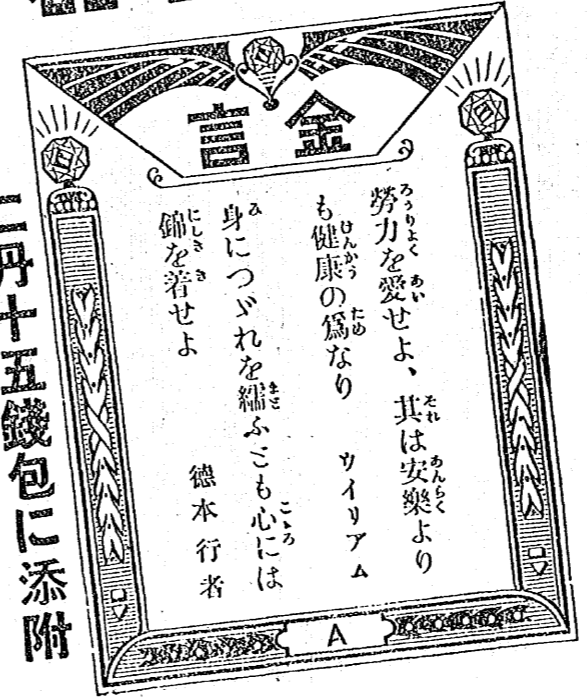 金言
勞力を愛せよ、其は安樂より
も健康の爲なり
ウイリアム
身につゞれを纏ふとも心には
錦を着せよ
德本行者
A
丹十五錢包に添附